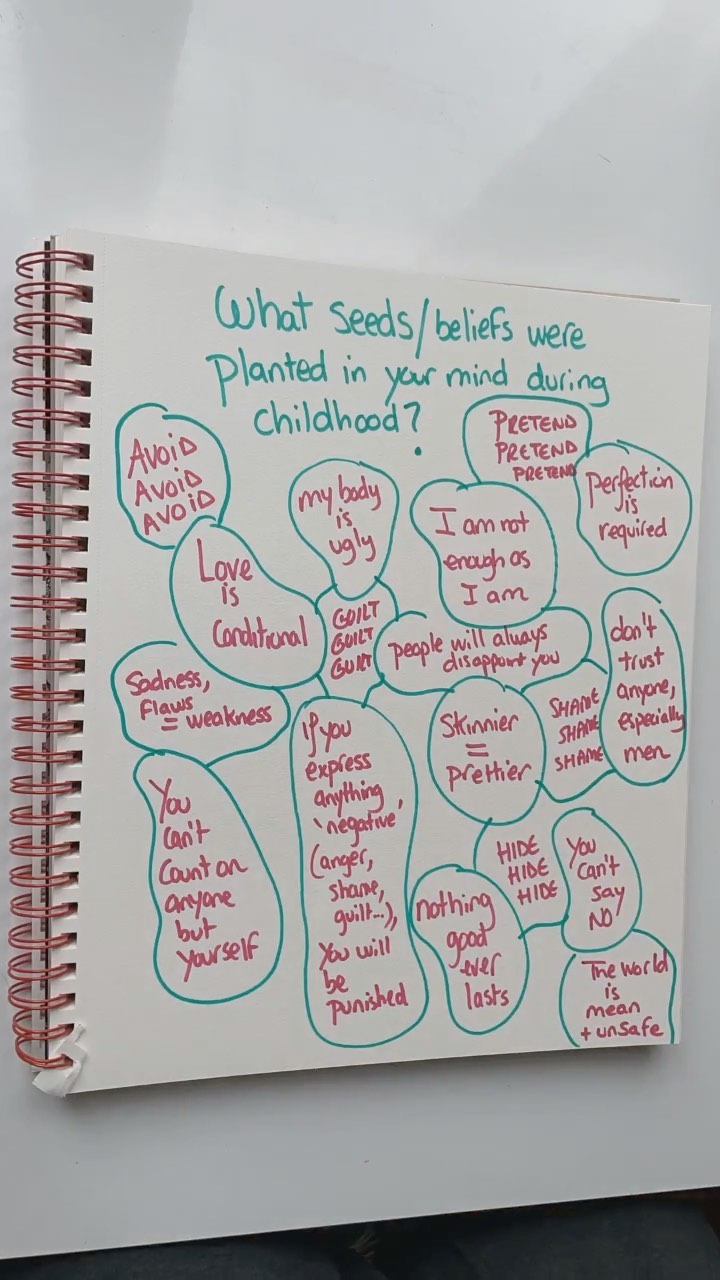 What seeds/beliefs were
planted in your mind during
childhood?
AVOID
AVOID
AVOID
Love
is
Conditional
my body
is
ugly
PRETEND
PRETEND
PRETEND
perfection
is
required
I am not
enough as
I am
GUILT
GUILT
GUILT
people will always
disappoint you
don't
trust
anyone,
especially
men
Sadness,
flaws
= weakness
If you
express
anything
'negative'
(anger,
shame,
guilt...),
you will
be
punished
Skinnier
=
prettier
SHAME
SHAME
SHAME
You
can't
count on
anyone
but
yourself
HIDE
HIDE
HIDE
You
can't
say
NO
nothing
good
ever
lasts
The world
is
mean
+ unsafe